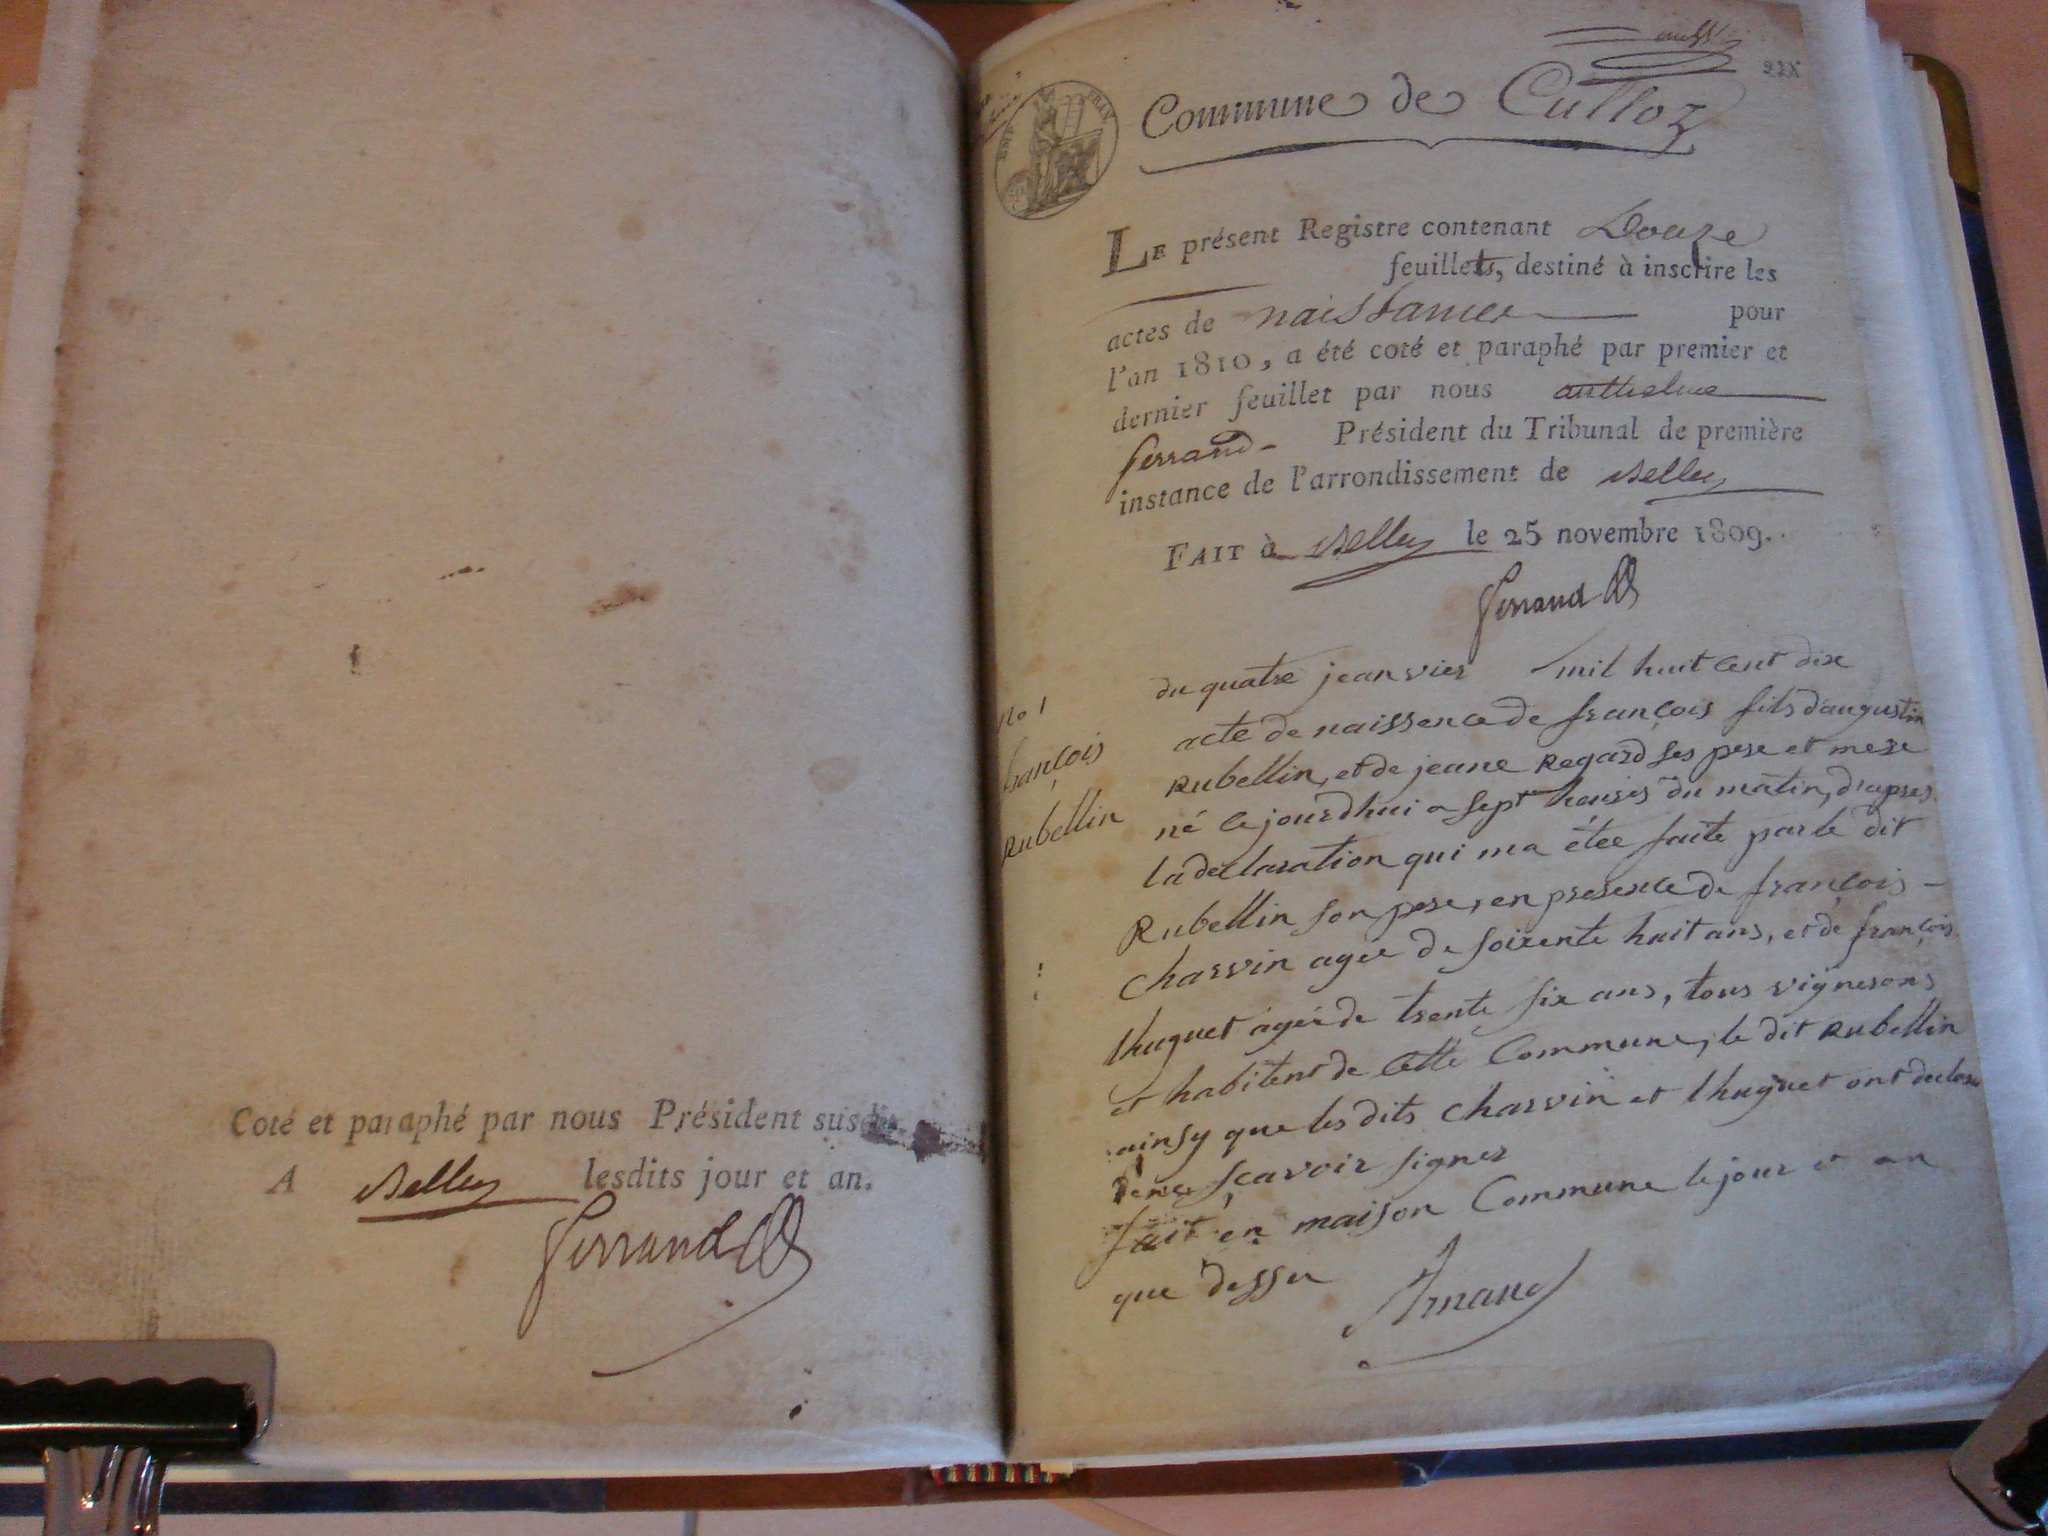 Coté et paraphé par nous Président susdit
A Belley lesdits jour et an.
Ferrand
Commune de Culloz
EMP. FRAN.
Le présent Registre contenant Douze
feuillets, destiné à inscrire les
actes de naissances pour
l'an 1810, a été coté et paraphé par premier et
dernier feuillet par nous anthelme
ferrand Président du Tribunal de première
instance de l'arrondissement de Belley
Fait à Belley le 25 novembre 1809.
Ferrand
No 1
françois
Rubellin
du quatre jeanvier mil huit cent dix
acte de naissence de françois fils d'augustin
Rubellin, et de jeane Regard ses pere et mere
né ce jourdhui a sept heures du matin, d'apres
la declaration qui ma étee faite par le dit
Rubellin son pere, en presence de françois -
Charvin agée de soixente huit ans, et de françois
lhuguet ageé de trente six ans, tous vignerons
et habitent de cette Commune, le dit Rubellin
ainsy que les dits Charvin et lhuguet ont declaré
de ne sçavoir signer
fait en maison Commune le jour et an
que dessu
Arnaud